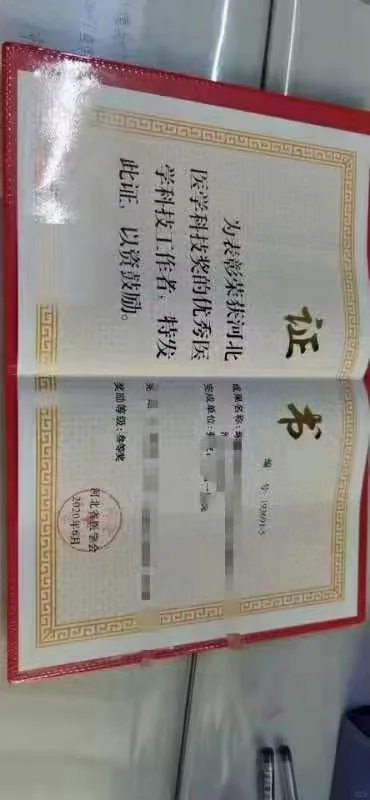 证书
为表彰荣获河北
医学科技奖的优秀医
学科技工作者，特发
此证，以资鼓励。
编 号：193691-5
成果名称：
完成单位：
奖励等级：叁等奖
河北省医学会
2020年6月